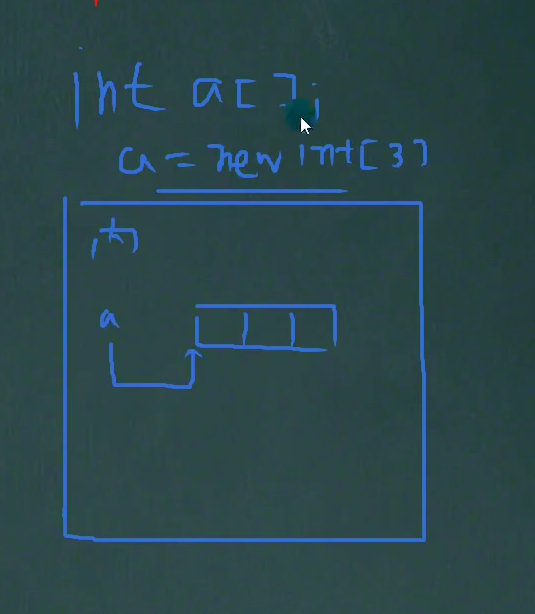 int a[];
a = new int[3]
内
a